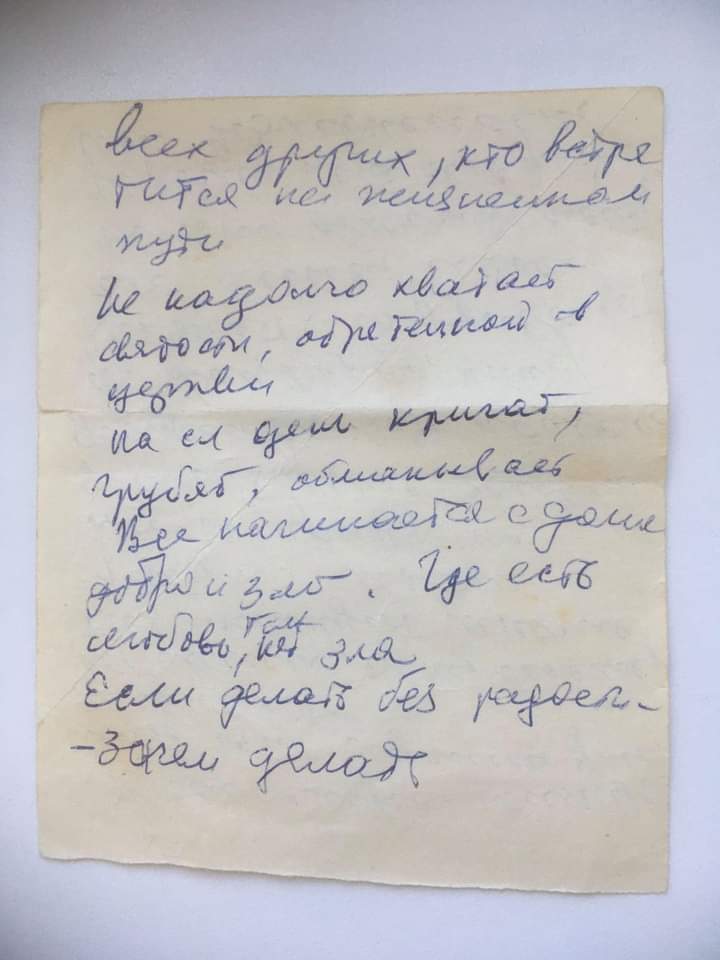 всех других, кто встре
тится на жизненном
пути
Не надолго хватает
святости, обретенной в
церкви
на сл день кричат,
грубят, обманывают
Все начинается с дома
добро и зло. Где есть
любовь, там нет зла
Если делать без радости-
-Зачем делать